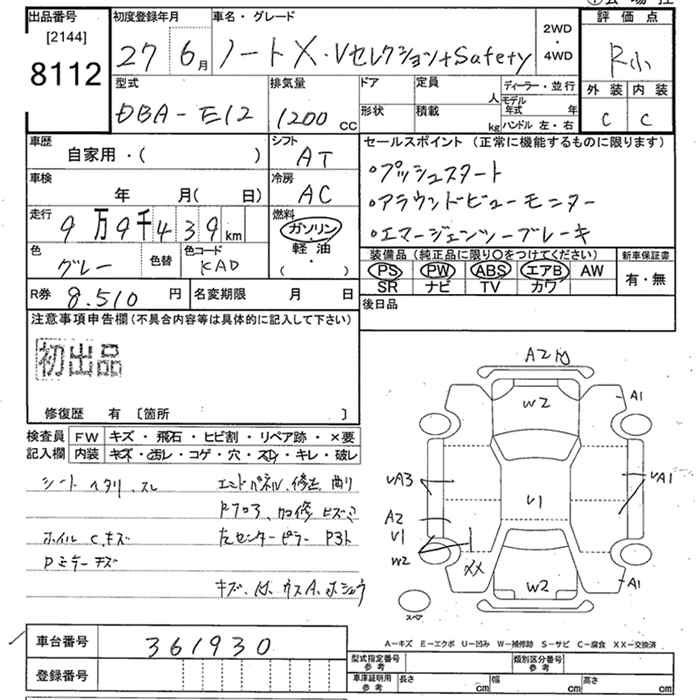 出品番号
[2144]
8112
初度登録年月
27 6月
車名・グレード
ノートX・Vセレクション+Safety
2WD
・
4WD
評価点
R小
外装 内装
C C
型式
DBA-E12
排気量
1200 cc
ドア
形状
定員
人
積載
kg
ディーラー・並行
モデル年式 年
ハンドル 左・右
車歴
自家用・( )
シフト
AT
車検
年 月( 日)
冷房
AC
走行
9万9千439km
燃料
ガソリン
・
軽油
・
( )
色
グレー
色替
色コード
KAD
R券 8.510円
名変期限 月 日
セールスポイント(正常に機能するものに限ります)
・プッシュスタート
・アラウンドビューモニター
・エマージェンシーブレーキ
装備品(純正品に限り○をつけてください)
新車保証書
PS PW ABS エアB AW
SR ナビ TV カワ
有・無
後日品
注意事項申告欄(不具合内容等は具体的に記入して下さい)
初出品
修復歴 有 [箇所 ]
検査員
記入欄
FW キズ・飛石・ヒビ割・リペア跡・×要
内装 キズ・汚レ・コゲ・穴・スレ・キレ・破レ
シート ヘタリ、スレ
ホイル Cキズ
Dミラーキズ
左センターピラー
A2
W2
A1
UA3
UA1
U1
A2
U1
W2
XX
W2
A1
スペア
A-キズ E-エクボ U-凹み W-補修跡 S-サビ C-腐食 XX-交換済
車台番号 361930
登録番号
型式指定番号
参考
類別区分番号
参考
車庫証明用
参考
長さ cm 幅 cm 高さ cm